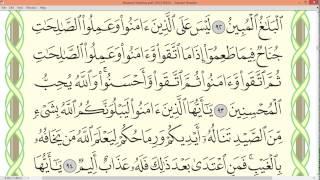 ٱلْبَلَٰغُ ٱلْمُبِينُ ٩٢ لَيْسَ عَلَى ٱلَّذِينَ ءَامَنُوا۟ وَعَمِلُوا۟ ٱلصَّٰلِحَٰتِ
جُنَاحٌ فِيمَا طَعِمُوٓا۟ إِذَا مَا ٱتَّقَوا۟ وَّءَامَنُوا۟ وَعَمِلُوا۟ ٱلصَّٰلِحَٰتِ
ثُمَّ ٱتَّقَوا۟ وَّءَامَنُوا۟ ثُمَّ ٱتَّقَوا۟ وَّأَحْسَنُوا۟ ۗ وَٱللَّهُ يُحِبُّ
ٱلْمُحْسِنِينَ ٩٣ يَٰٓأَيُّهَا ٱلَّذِينَ ءَامَنُوا۟ لَيَبْلُوَنَّكُمُ ٱللَّهُ بِشَىْءٍ
مِّنَ ٱلصَّيْدِ تَنَالُهُۥٓ أَيْدِيكُمْ وَرِمَاحُكُمْ لِيَعْلَمَ ٱللَّهُ مَن يَخَافُهُۥ
بِٱلْغَيْبِ ۚ فَمَنِ ٱعْتَدَىٰ بَعْدَ ذَٰلِكَ فَلَهُۥ عَذَابٌ أَلِيمٌ ٩٤ يَٰٓأَيُّهَا